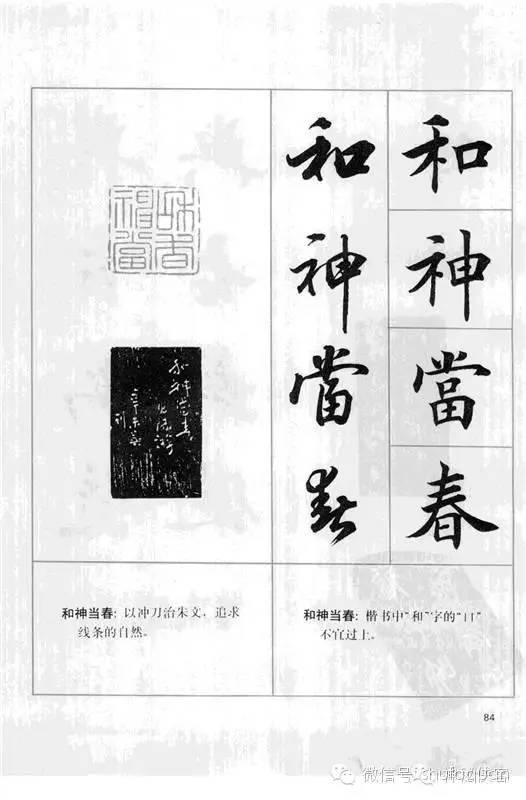 和神當春
和神當春
和神當春
和神當春
和神当春：以冲刀治朱文，追求
线条的自然。
和神当春：楷书中“和”字的“口”
不宜过上。
84
微信号